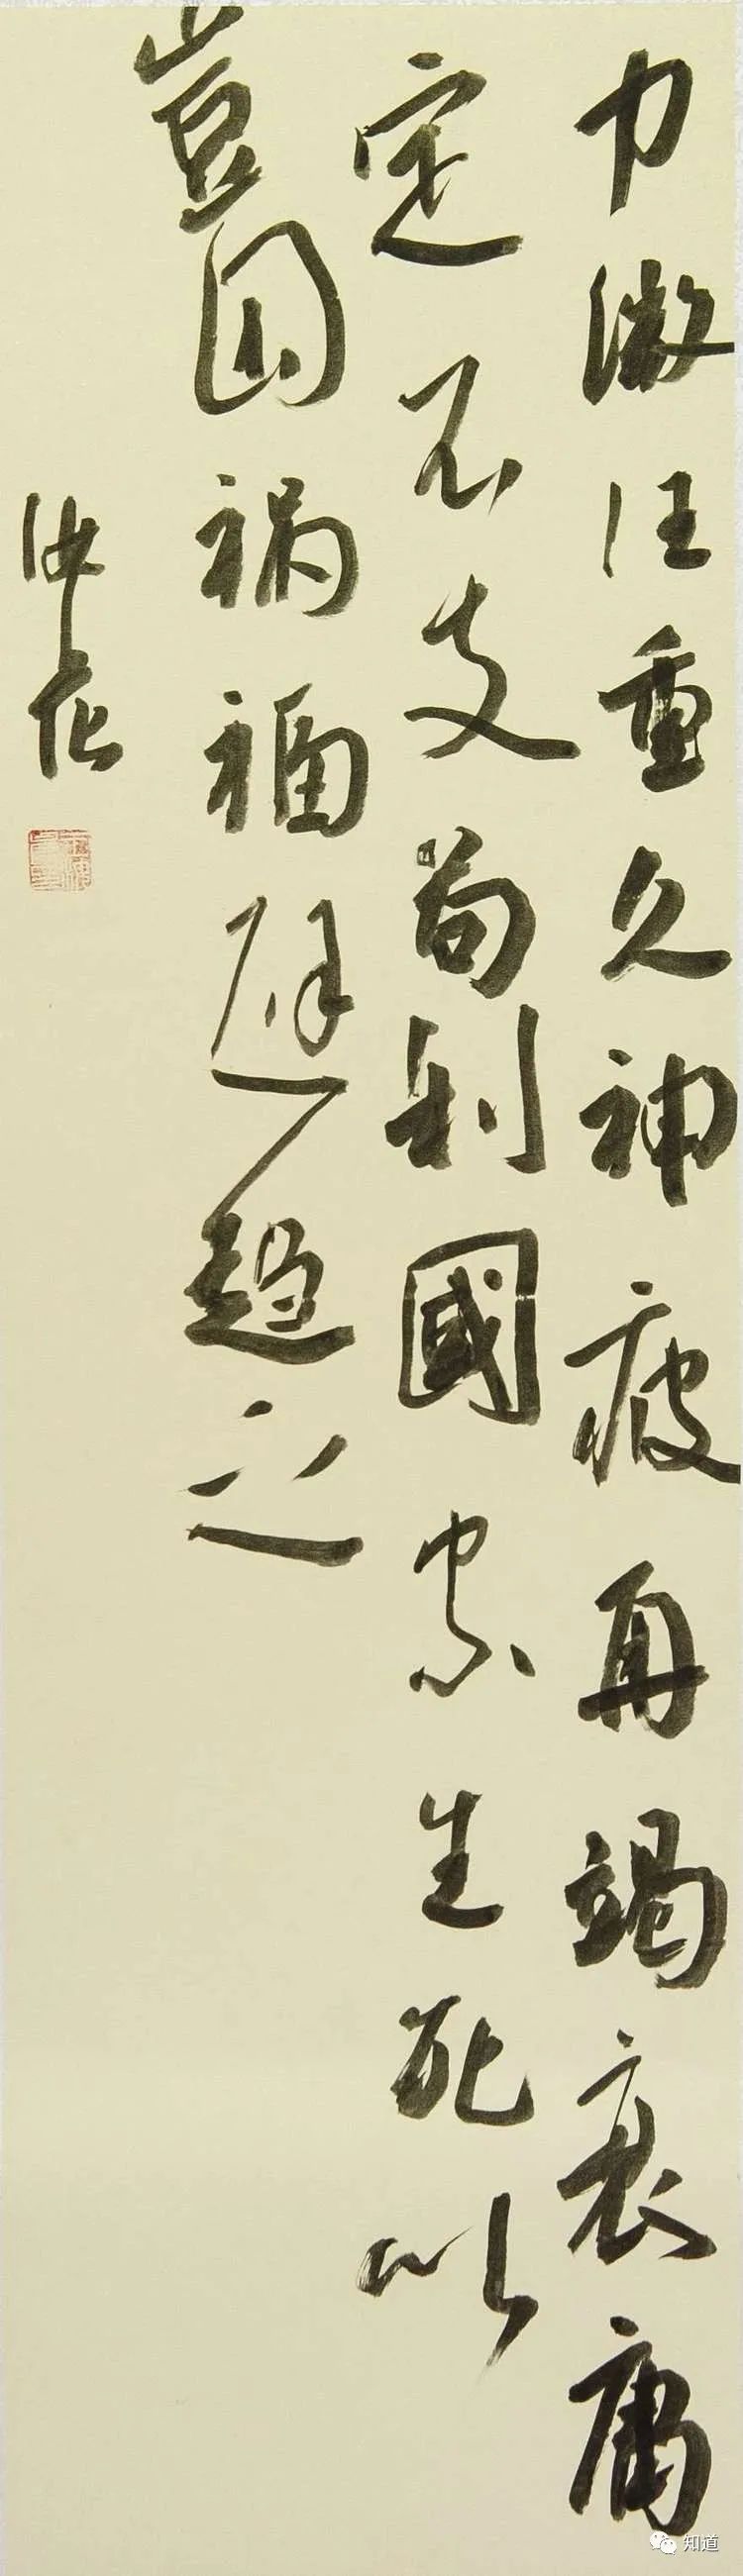 力微任重久神疲再竭衰庸
定不支苟利國家生死以
豈因祸福避趨之
知道